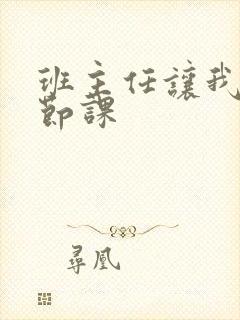 班主任讓我
節課
尋凰